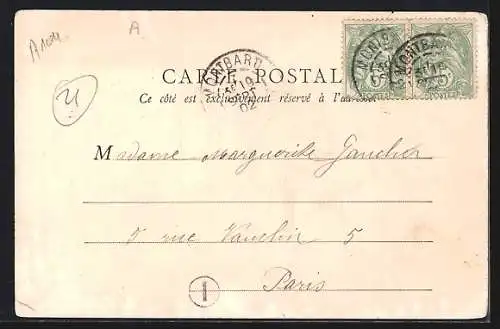 A
CARTE POSTALE
Ce côté est exclusivement réservé à l'adresse.
MONTBARD
02
MONTBARD
5 5
Madame Marguerite Gaucher
5 rue Vauclin 5
Paris
1